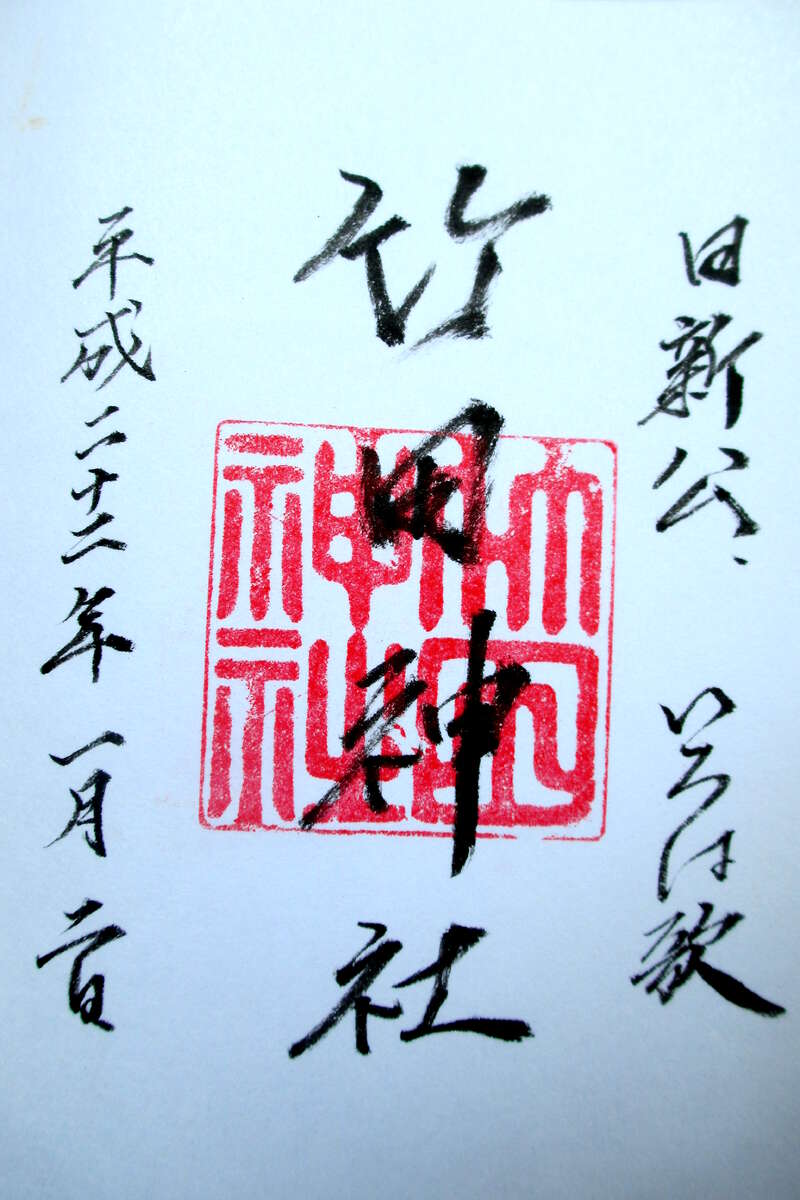 日新公、いろは歌
竹田神社
平成二十二年一月二日
竹田
神社